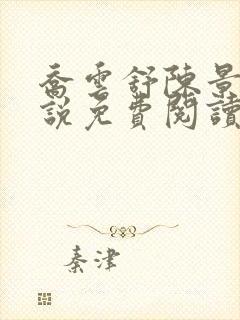 喬雲舒陳景
說免費閱讀
秦津